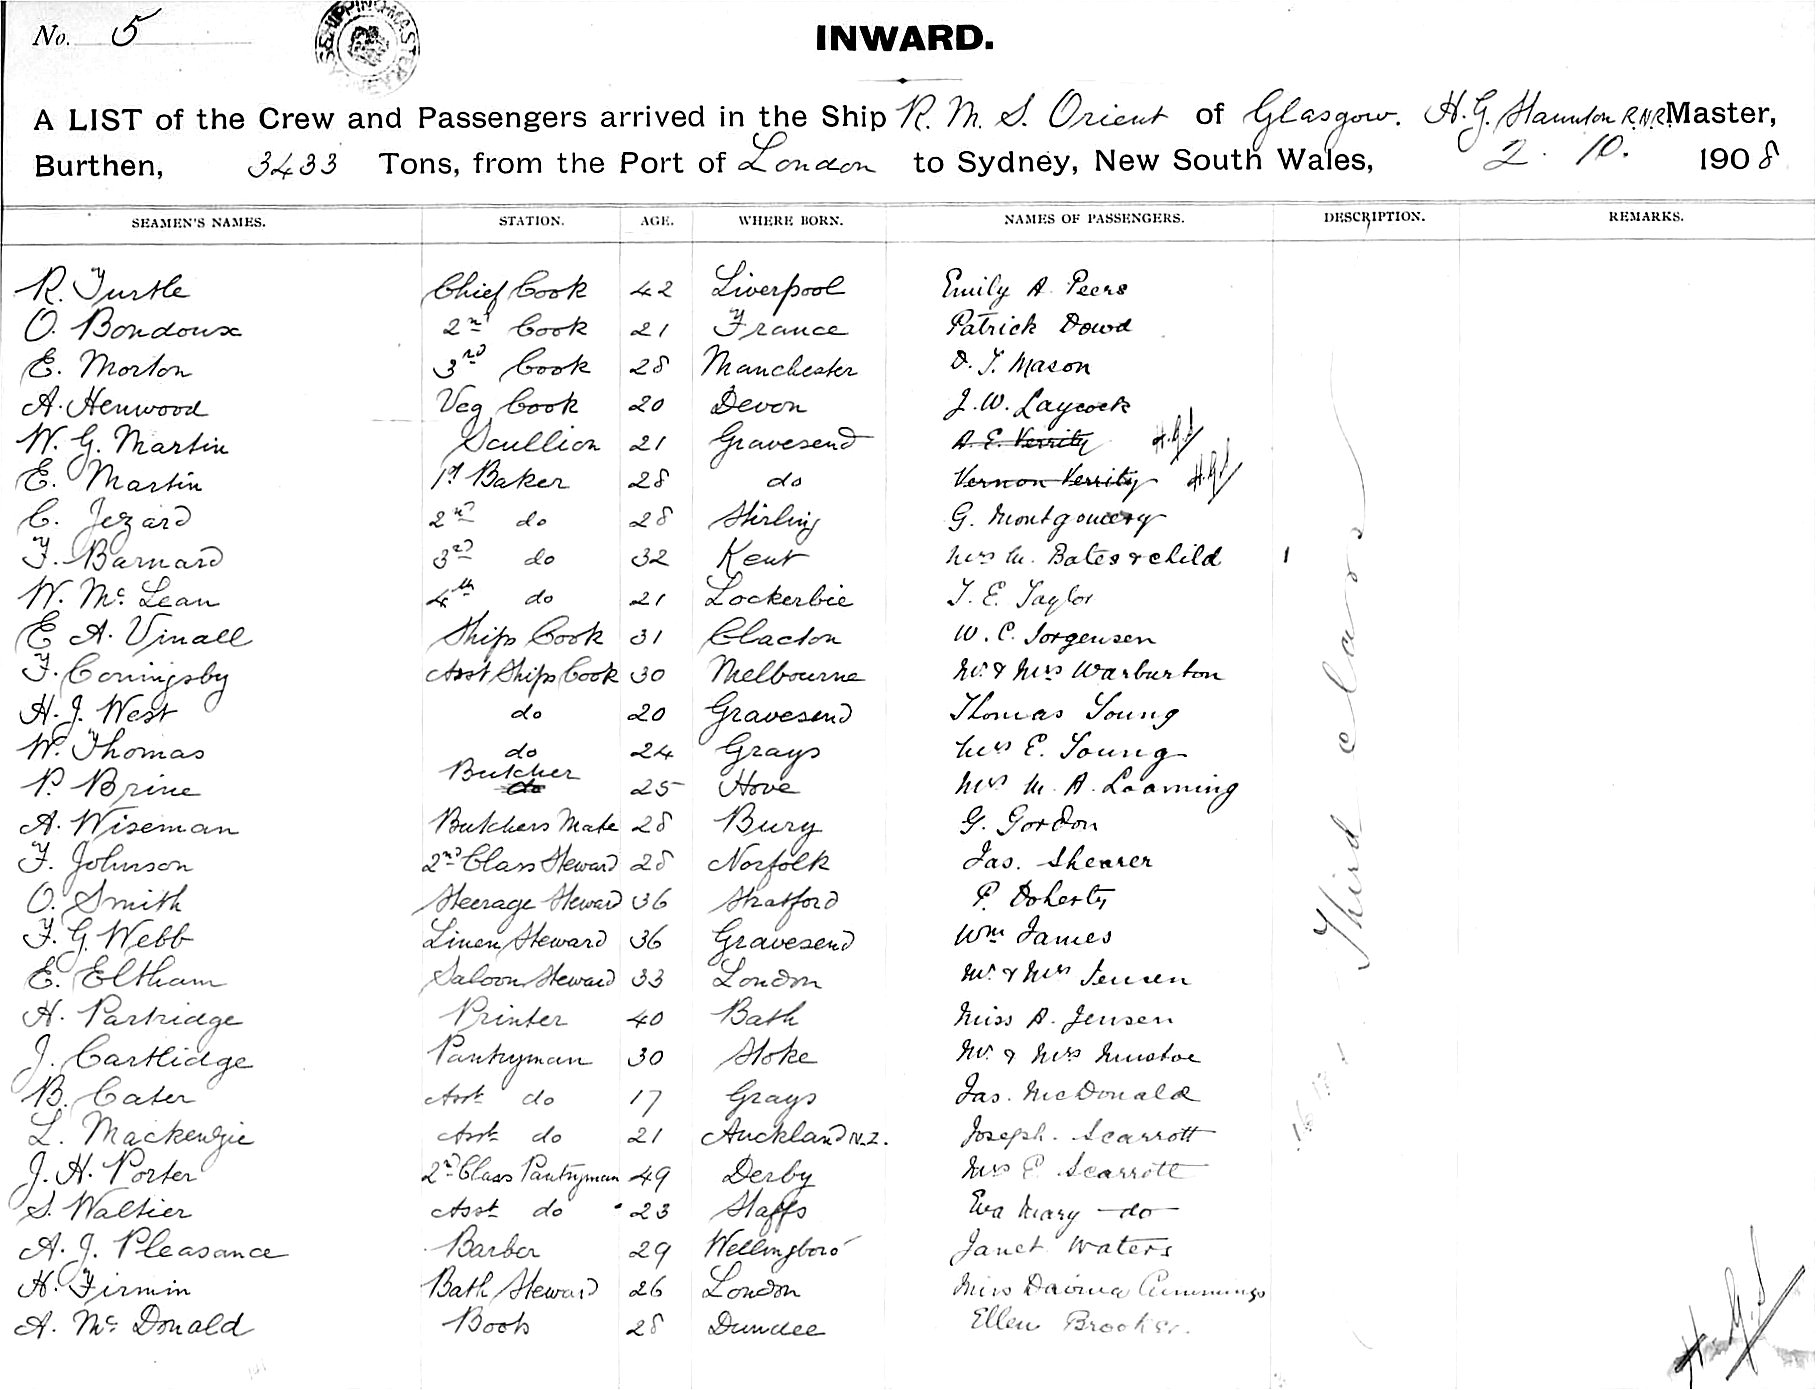 No. 5
SHIPPING MASTER
INWARD.
A LIST of the Crew and Passengers arrived in the Ship R. M. S. Orient of Glasgow. H. G. Staunton R.N.R. Master,
Burthen, 3433 Tons, from the Port of London to Sydney, New South Wales, 2. 10. 1908
SEAMEN'S NAMES. STATION. AGE. WHERE BORN. NAMES OF PASSENGERS. DESCRIPTION. REMARKS.
R. Turtle Chief Cook 42 Liverpool Emily A. Peers
O. Bondoux 2nd Cook 21 France Patrick Dowd
E. Morton 3rd Cook 28 Manchester D. T. Mason
A. Henwood Veg Cook 20 Devon J. W. Laycock
W. G. Martin Scullion 21 Gravesend A. E. Verrity
E. Martin 1st Baker 28 do Vernon Verrity
C. Jezard 2nd do 28 Stirling G. Montgomery
F. Barnard 3rd do 32 Kent Mrs M. Bates & child 1
W. Mc Lean 4th do 21 Lockerbie T. E. Taylor
E A. Vinall Ships Cook 31 Clacton W. C. Jorgensen
F. Coningsby Asst Ships Cook 30 Melbourne Mr. & Mrs Warburton
H. J. West do 20 Gravesend Thomas Young
W. Thomas do 24 Grays Mrs E. Young
P. Brine Butcher do 25 Hove Mrs M. A. Loaming
A. Wiseman Butchers Mate 28 Bury G. Gordon
F. Johnson 2nd Class Steward 28 Norfolk Jas. Shearer
O. Smith Steerage Steward 36 Stratford P. Doherty
F. G. Webb Linen Steward 36 Gravesend Wm James
E. Eltham Saloon Steward 33 London Mr. & Mrs Jensen
H. Partridge Printer 40 Bath Miss A. Jensen
J. Cartlidge Pantryman 30 Stoke Mr. & Mrs Mustoe
B. Cater Asst do 17 Grays Jas. McDonald
L. Mackenzie Asst do 21 Auckland N.Z. Joseph. Scarrott
J. H. Porter 2nd Class Pantryman 49 Derby Mrs E Scarrott
S. Waltier Asst do 23 Staffs Eva Mary do
A. J. Pleasance Barber 29 Wellingboro' Janet Waters
H. Firmin Bath Steward 26 London Miss Davina Cummings
A. Mc Donald Boots 28 Dundee Ellen Brooker.
Third class